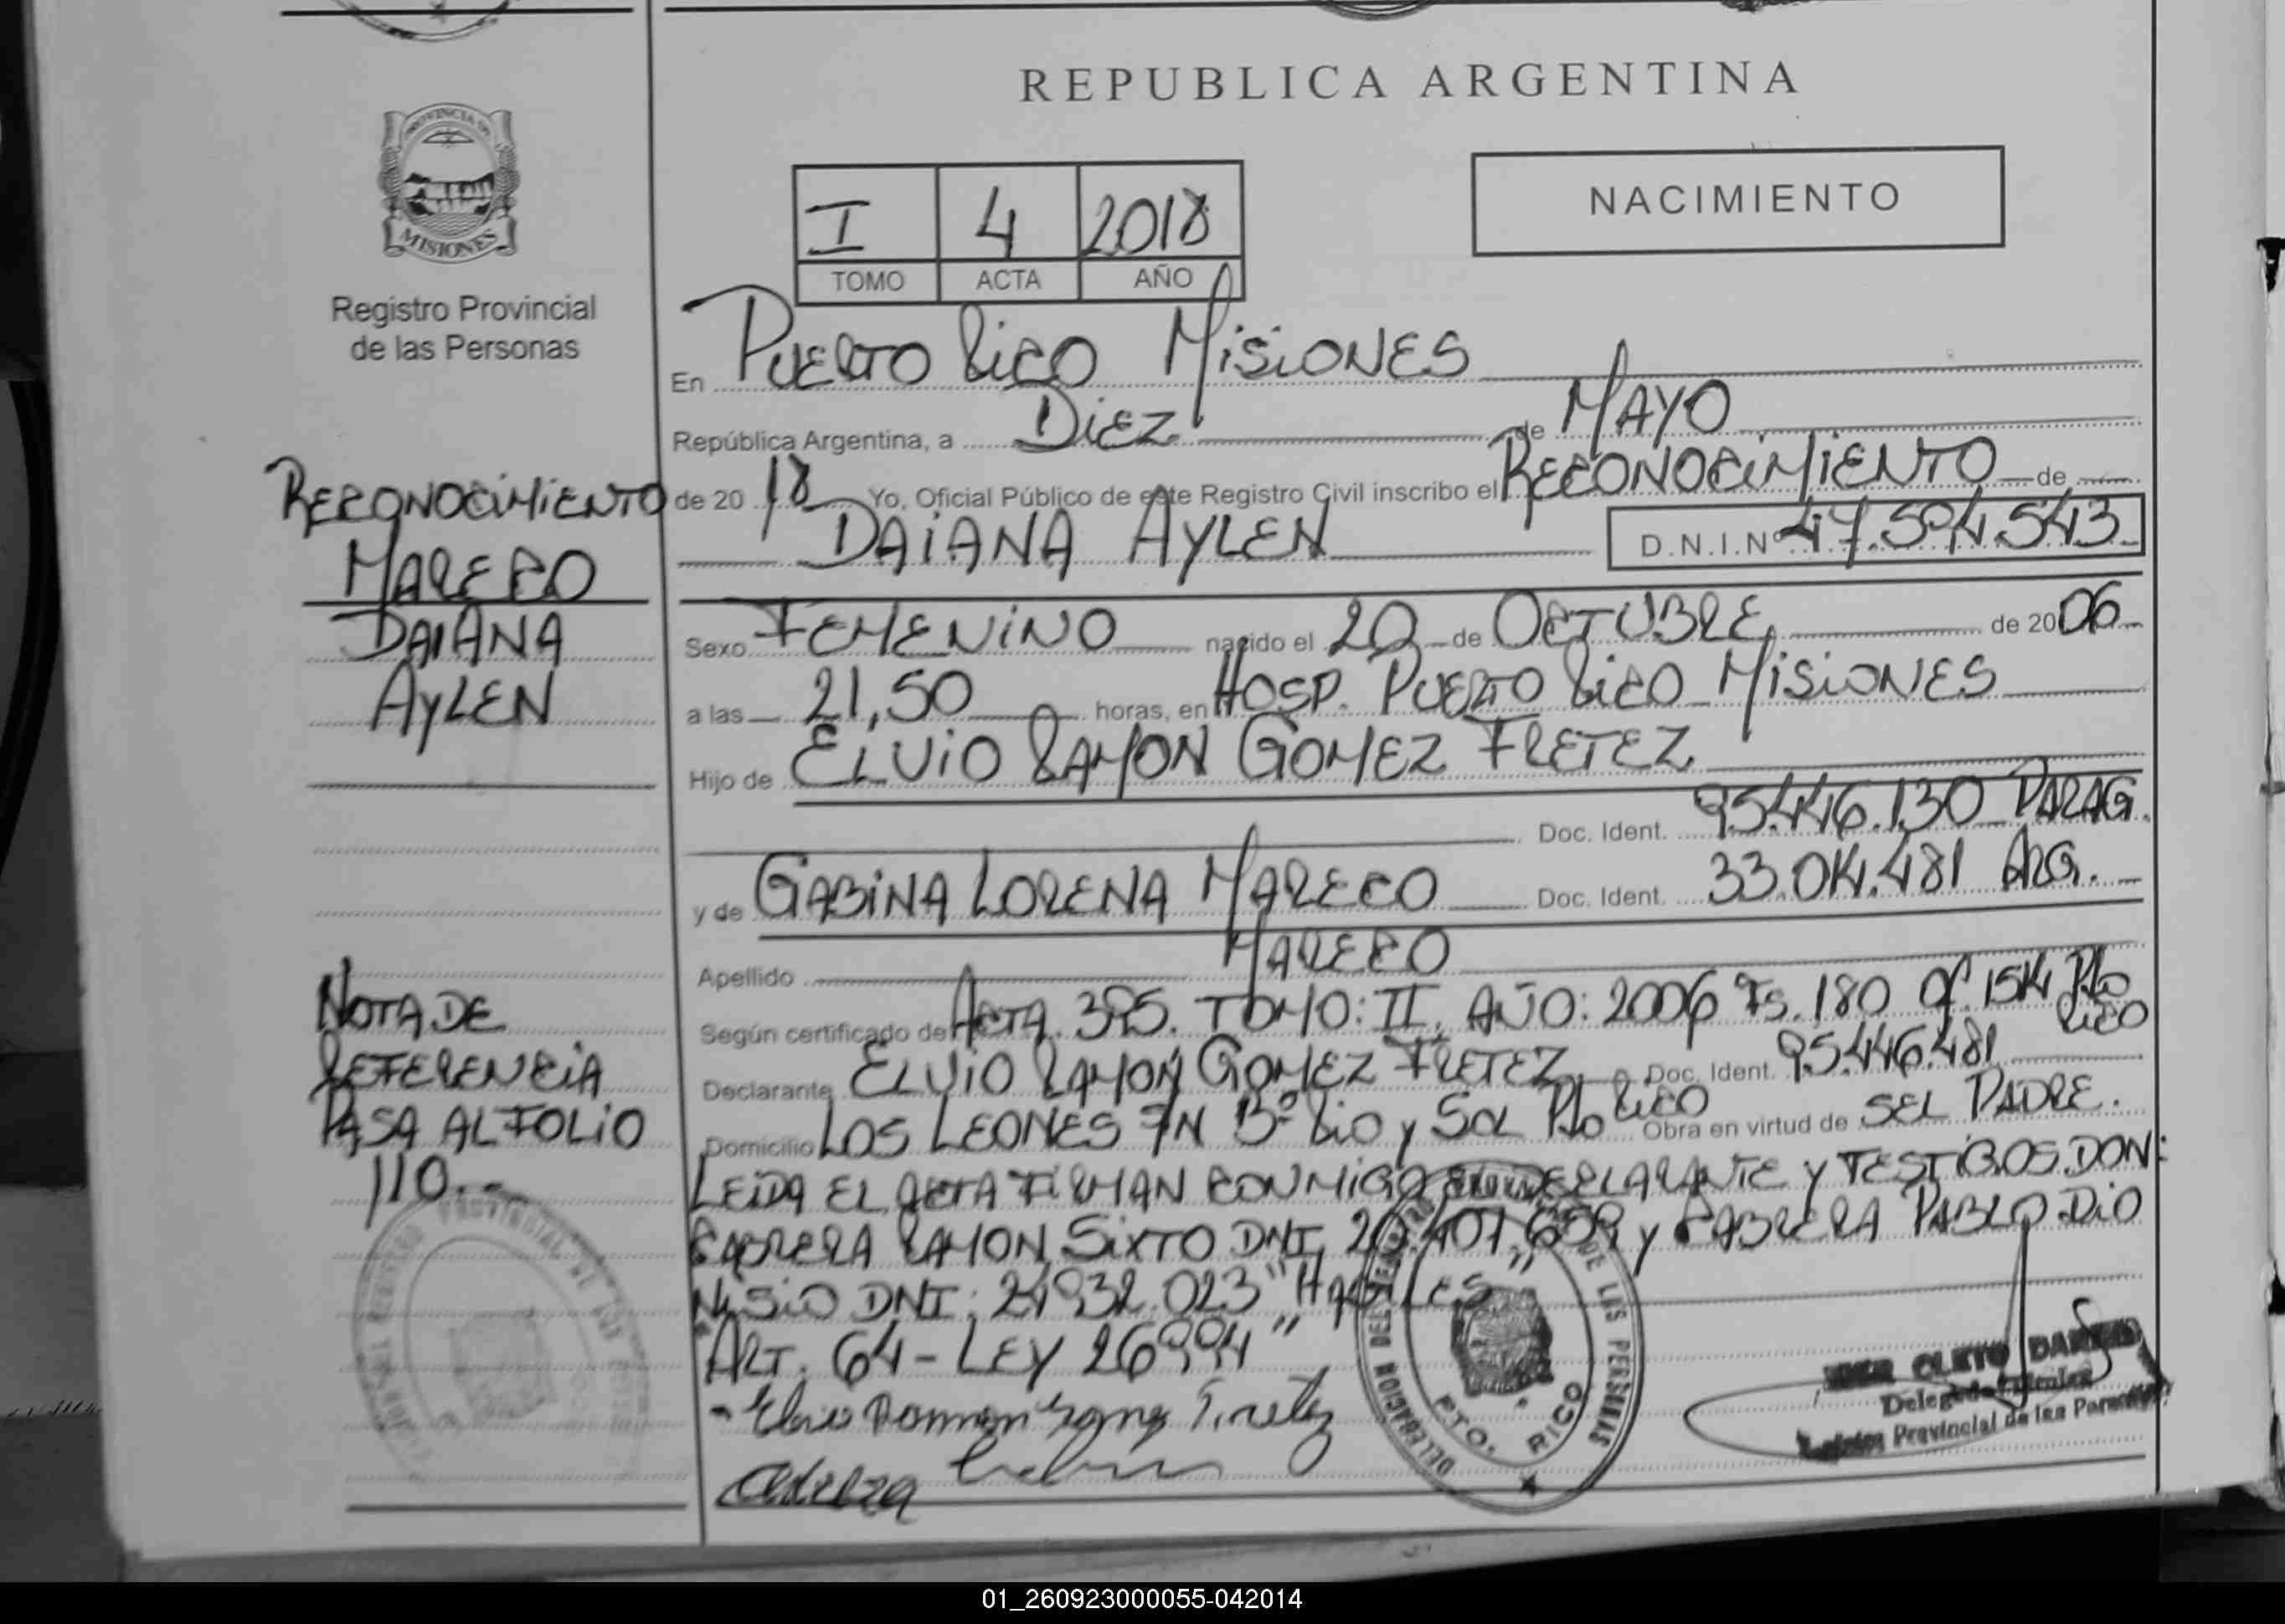 REPUBLICA ARGENTINA
PROVINCIA DE
MISIONES
Registro Provincial
de las Personas
I 4 2018
TOMO ACTA AÑO
NACIMIENTO
En PUERTO RICO MISIONES
República Argentina, a DIEZ de MAYO
de 2018 Yo, Oficial Público de este Registro Civil inscribo el RECONOCIMIENTO de
DAIANA AYLEN D.N.I.Nº 47.594.543
Sexo FEMENINO nacido el 20 de OCTUBRE de 2006
a las 21,50 horas, en HOSP. PUERTO RICO MISIONES
Hijo de ELVIO RAMON GOMEZ FRETEZ
Doc. Ident. 95.446.130 PARAG.
y de GABINA LORENA MARECO Doc. Ident. 33.014.481 ARG.
Apellido MARECO
Según certificado de ACTA 395. TOMO: II. AÑO: 2006 Fs. 180 Of. 154 Pto RICO
Declarante ELVIO RAMON GOMEZ FRETEZ Doc. Ident. 95.446.481
Domicilio LOS LEONES S/N Bº RIO y SOL Pto RICO Obra en virtud de SEL PADRE.
LEIDA EL ACTA FIRMAN CONMIGO EL DECLARANTE y TESTIGOS DON:
CABRERA RAMON SIXTO DNI 20.407.659 y CABRERA PABLO DIO
NISIO DNI: 24932.023 "HABILES"
"ART. 64 - LEY 26994"
RECONOCIMIENTO
MARECO
DAIANA
AYLEN
NOTA DE
REFERENCIA
PASA AL FOLIO
110.-
DE LAS PERSONAS
DELEGACION
PTO. RICO
CLETO
Provincial de las Personas
01_260923000055-042014